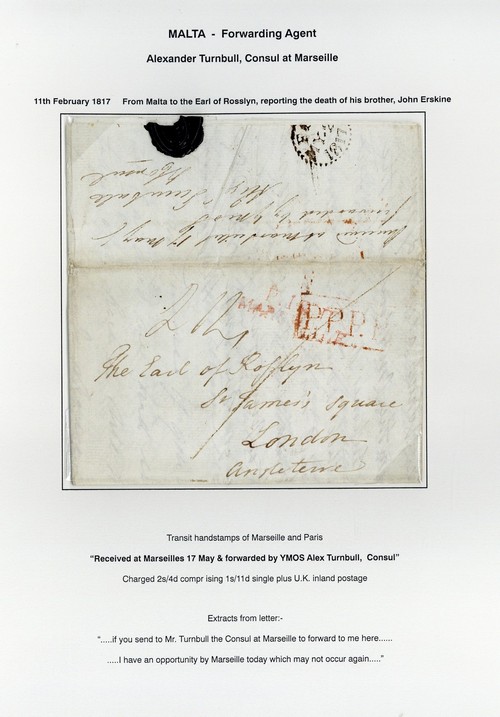 MALTA - Forwarding Agent
Alexander Turnbull, Consul at Marseille
11th February 1817 From Malta to the Earl of Rosslyn, reporting the death of his brother, John Erskine
Received at Marseilles 17 May
forwarded by YMOS
Alex Turnbull
Consul
1817
P.P.P.P.
The Earl of Rosslyn
St James's Square
London
Angleterre
Transit handstamps of Marseille and Paris
“Received at Marseilles 17 May & forwarded by YMOS Alex Turnbull, Consul”
Charged 2s/4d compr ising 1s/11d single plus U.K. inland postage
Extracts from letter:-
“.....if you send to Mr. Turnbull the Consul at Marseille to forward to me here......
.....I have an opportunity by Marseille today which may not occur again.....”